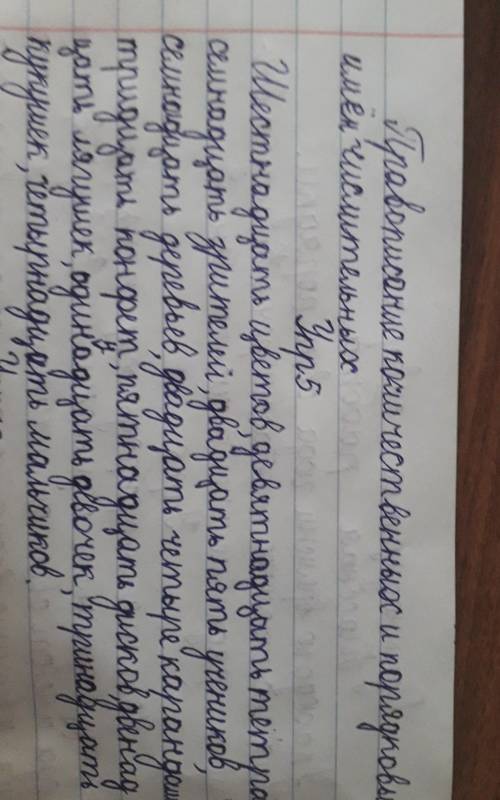 Правописание количественных и порядковы
имён числительных
Упр 5
Шестнадцать цветов, девятнадцать тетра
семнадцать зрителей, двадцать пять учеников,
семнадцать деревьев, двадцать четыре каранда
тридцать конфет, пятнадцать дисков, двенад
цать лягушек, одиннадцать девочек, тринадцать
кукушек, четырнадцать мальчиков.